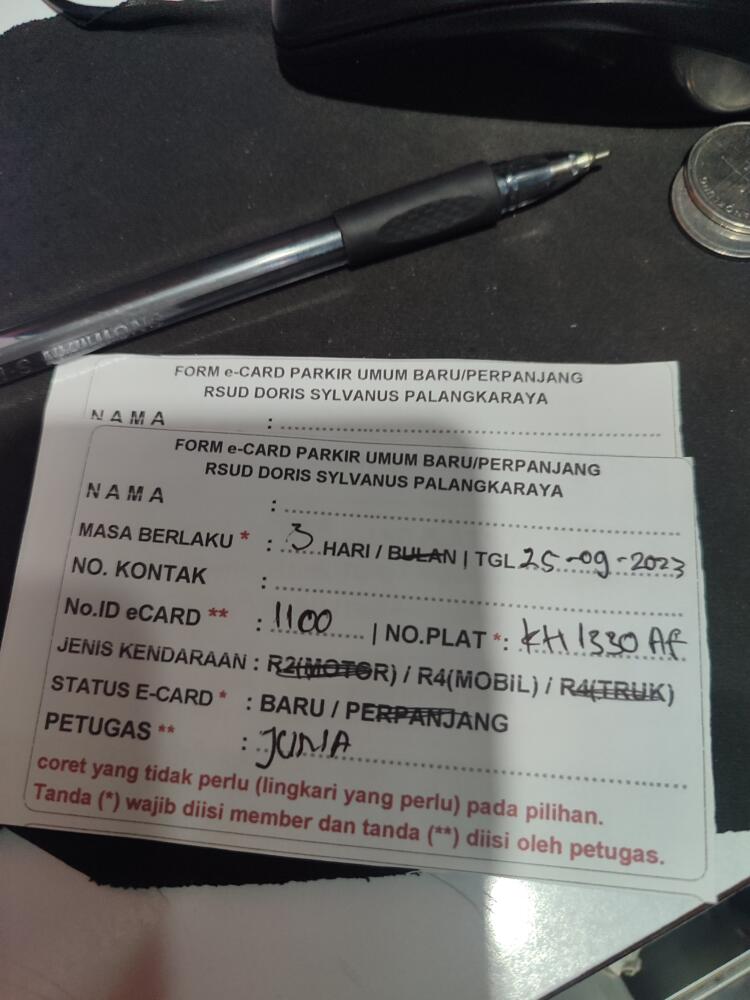 FORM e-CARD PARKIR UMUM BARU/PERPANJANG
RSUD DORIS SYLVANUS PALANGKARAYA
NAMA :
FORM e-CARD PARKIR UMUM BARU/PERPANJANG
RSUD DORIS SYLVANUS PALANGKARAYA
NAMA :
MASA BERLAKU * : 3 HARI / BULAN | TGL 25-09-2023
NO. KONTAK :
No.ID eCARD ** : 1100 | NO.PLAT *: KH 1330 AF
JENIS KENDARAAN : R2(MOTOR) / R4(MOBiL) / R4(TRUK)
STATUS E-CARD * : BARU / PERPANJANG
PETUGAS ** : JUNIA
coret yang tidak perlu (lingkari yang perlu) pada pilihan.
Tanda (*) wajib diisi member dan tanda (**) diisi oleh petugas.